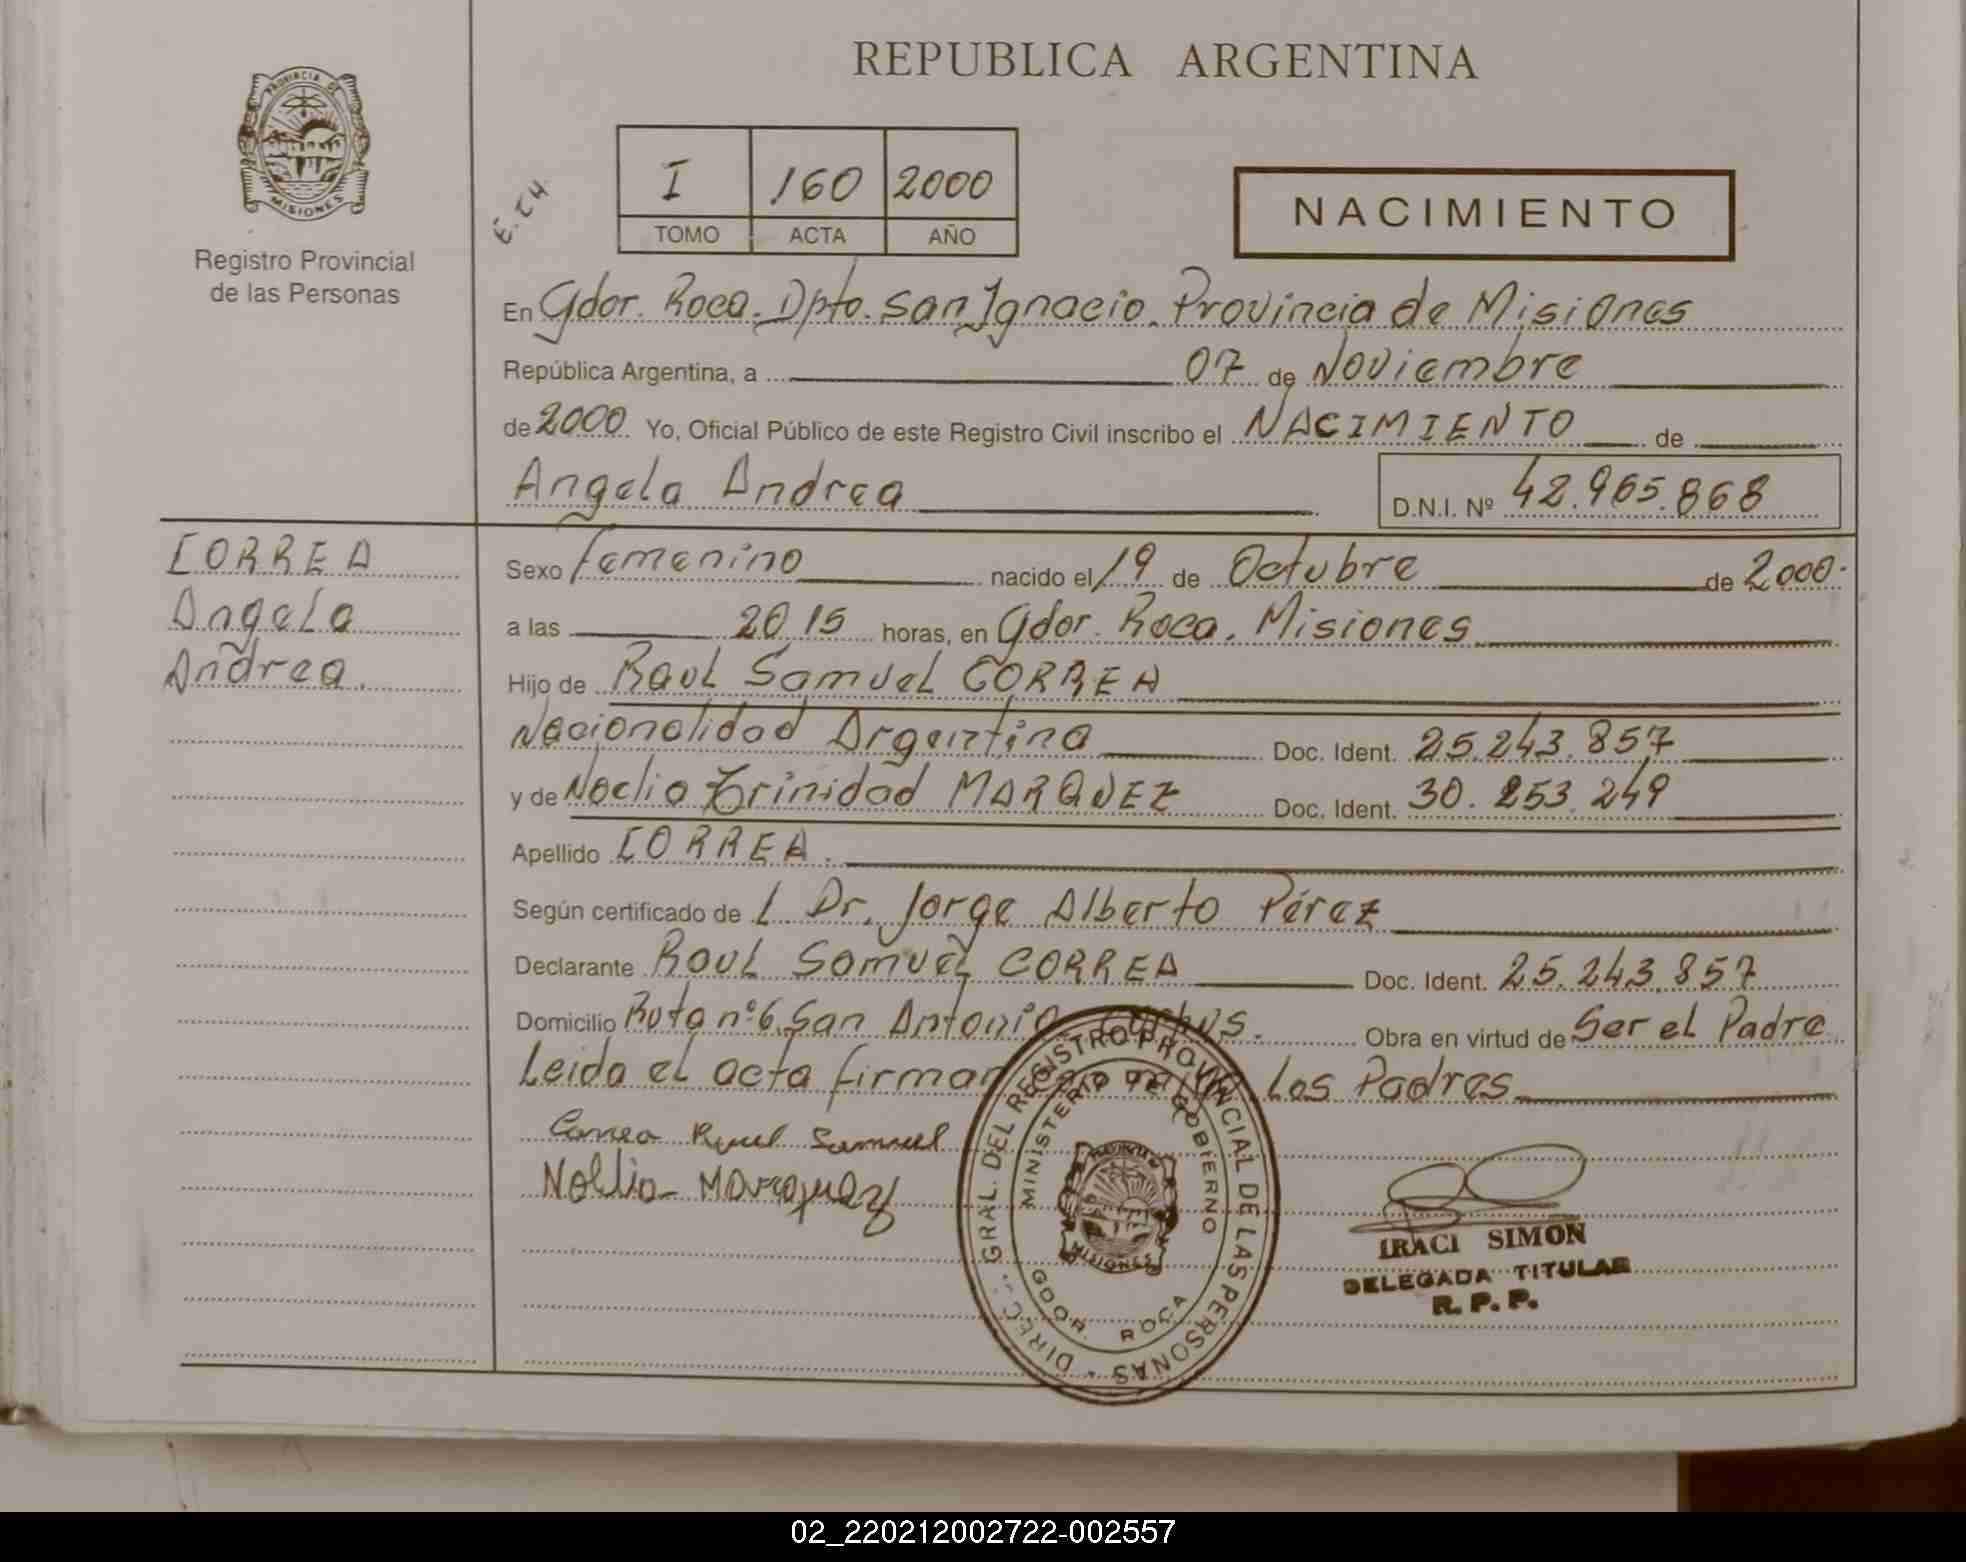 REPUBLICA ARGENTINA
PROVINCIA DE
MISIONES
Registro Provincial
de las Personas
I 160 2000
TOMO ACTA AÑO
NACIMIENTO
En Gdor. Roca. Dpto. San Ignacio. Provincia de Misiones
República Argentina, a 07 de Noviembre
de 2000 Yo, Oficial Público de este Registro Civil inscribo el NACIMIENTO de
Angela Andrea D.N.I. Nº 42.965.868
CORREA
Angela
Andrea.
Sexo femenino nacido el 19 de Octubre de 2000.
a las 20 15 horas, en Gdor. Roca. Misiones
Hijo de Raul Samuel CORREA
Nacionalidad Argentina Doc. Ident. 25.243.857
y de Noelia Trinidad MARQUEZ Doc. Ident. 30.253.249
Apellido CORREA.
Según certificado de L Dr. Jorge Alberto Pérez
Declarante Raul Samuel CORREA Doc. Ident. 25.243.857
Domicilio Ruta nº 6. San Antonio Corpus. Obra en virtud de Ser el Padre
Leida el acta firman Los Padres
Correa Raul Samuel
Noelia Marquez
DIREC. GRAL. DEL REGISTRO PROVINCIAL DE LAS PERSONAS
MINISTERIO DE GOBIERNO
MISIONES
GDOR. ROCA
IRACI SIMON
DELEGADA TITULAR
R. P. P.
02_220212002722-002557